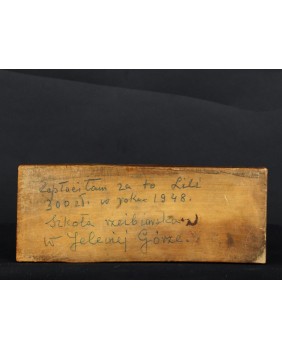 Zapłaciłam za to Lili
300 zł. w roku 1948.
Szkoła rzeźbiarska
w Jeleniej Górze.